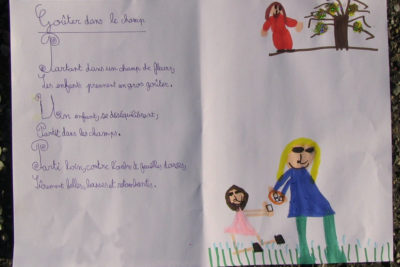 Goûter dans le champ
Partant dans un champ de fleurs,
Les enfants prennent un gros goûter.
Un enfant, se déséquilibrant,
Partit dans les champs.
loin, contre l'arbre à feuilles
belles, basses et